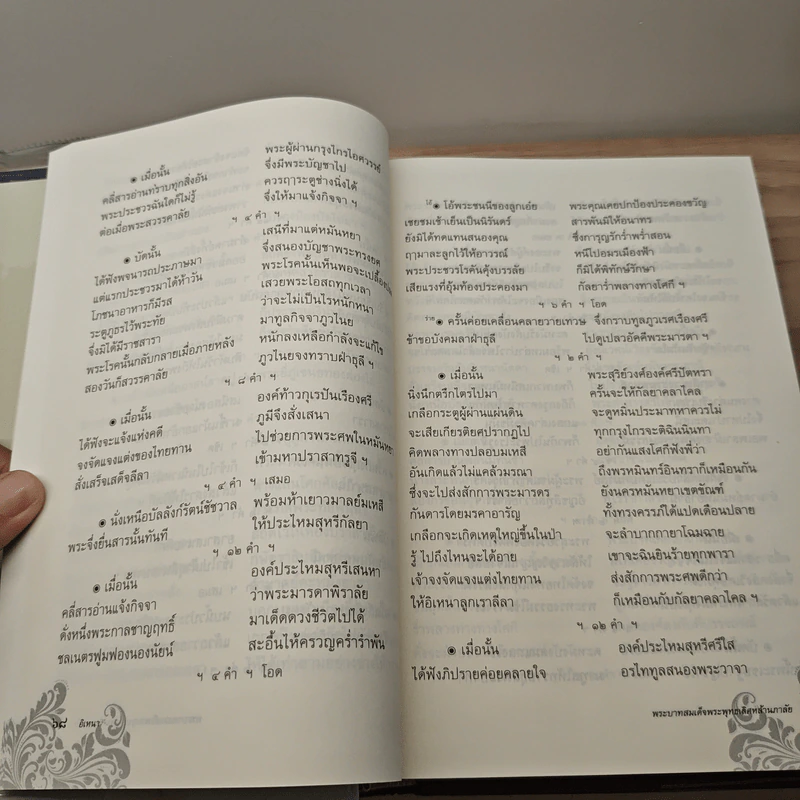 ๏ เมื่อนั้น พระผู้ผ่านกรุงไกรไอศวรรย์
คลี่สารอ่านทราบทุกสิ่งอัน จึ่งมีพระบัญชาไป
พระประชวรฉันใดก็ไม่รู้ ควรฤๅระตูช่างนิ่งได้
ต่อเมื่อพระสวรรคาลัย จึ่งให้มาแจ้งกิจจา ฯ
ฯ ๔ คำ ฯ
๏ บัดนั้น เสนีที่มาแต่หมันหยา
ได้ฟังพจนารถประภาษมา จึ่งสนองบัญชาพระทรงยศ
แต่แรกประชวรมาได้ห้าวัน พระโรคนั้นเห็นพอจะเปลื้อง
โภชนาอาหารก็มีรส เสวยพระโอสถทุกเวลา
ระตูภูธรไว้พระทัย ว่าจะไม่เป็นไรหนักหนา
จึ่งมิได้มีราชสารา มาทูลกิจจาภูวไนย
พระโรคนั้นกลับกลายเมื่อภายหลัง หนักลงเหลือกำลังจะแก้ไข
สองวันก็สวรรคาลัย ภูวไนยจงทราบฝ่าธุลี ฯ
ฯ ๘ คำ ฯ
๏ เมื่อนั้น องค์ท้าวกุเรปันเรืองศรี
ได้ฟังจะแจ้งแห่งคดี ภูมีจึงสั่งเสนา
จงจัดแจงแต่งของไทยทาน ไปช่วยการพระศพในหมันหยา
สั่งเสร็จเสด็จลีลา เข้ามหาปราสาทรูจี ฯ
ฯ ๔ คำ ฯ เสมอ
๏ นั่งเหนือบัลลังก์รัตน์ชัชวาล พร้อมท้าเยาวมาลย์มเหสี
พระจึ่งยื่นสารนั้นทันที ให้ประไหมสุหรีกัลยา
ฯ ๒ คำ ฯ
๏ เมื่อนั้น องค์ประไหมสุหรีเสนหา
คลี่สารอ่านแจ้งกิจจา ว่าพระมารดาพิราลัย
ดั่งหนึ่งพระกาลชาญฤทธิ์ มาเด็ดดวงชีวิตไปได้
ชลเนตรฟูมฟองนองนัยน์ สะอื้นไห้ครวญคร่ำรำพัน
ฯ ๔ คำ ฯ โอด
๖๘ อิเหนา
โอ้ ๏ โอ้พระชนนีของลูกเอ๋ย พระคุณเคยปกป้องประคองขวัญ
เชยชมเช้าเย็นเป็นนิรันดร์ สารพันมิให้อนาทร
ยังมิได้ทดแทนสนองคุณ ซึ่งการุญรักร่ำพร่ำสอน
ฤๅมาละลูกไว้ให้อาวรณ์ หนีไปอมรเมืองฟ้า
พระประชวรไรคันคุ้งบรรลัย ก็มิได้พิทักษ์รักษา
เสียแรงที่อุ้มท้องประคองมา กัลยาร่ำพลางทางโศกี ฯ
ฯ ๖ คำ ฯ โอด
ร่าย ๏ ครั้นค่อยเคลื่อนคลายวายเทวษ จึ่งกราบทูลภูวเรศเรืองศรี
ข้าขอบังคมลาฝ่าธุลี ไปดูเปลวอัคคีพระมารดา ฯ
ฯ ๒ คำ ฯ
๏ เมื่อนั้น พระสุริย์วงศ์องค์ศรีปัตหรา
นิ่งนึกตรึกไตรไปมา ครั้นจะให้กัลยาคลาไคล
เกลือกระตูผู้ผ่านแผ่นดิน จะดูหมิ่นประมาทหาควรไม่
จะเสียเกียรติยศปรากฏไป ทุกกรุงไกรจะติฉินนินทา
คิดพลางทางปลอบมเหสี อย่ากันแสงโศกีฟังพี่ว่า
อันเกิดแล้วไม่แคล้วมรณา ถึงพรหมินทร์อินทราก็เหมือนกัน
ซึ่งจะไปส่งสักการพระมารดร ยังนครหมันหยาเขตขัณฑ์
กันดารโดยมรคาอารัญ ทั้งทรงครรภ์ได้แปดเดือนปลาย
เกลือกจะเกิดเหตุใหญ่ขึ้นในป่า จะลำบากกายาโฉมฉาย
รู้ไปถึงไหนจะได้อาย เขาจะฉินยินร้ายทุกพารา
เจ้าจงจัดแจงแต่งไทยทาน ส่งสักการพระศพดีกว่า
ให้อิเหนาลูกเราลีลา ก็เหมือนกับกัลยาคลาไคล ฯ
ฯ ๑๒ คำ ฯ
๏ เมื่อนั้น องค์ประไหมสุหรีศรีใส
ได้ฟังภิปรายค่อยคลายใจ อรไททูลสนองพระวาจา
พระบาทสมเด็จพระพุทธเลิศหล้านภาลัย